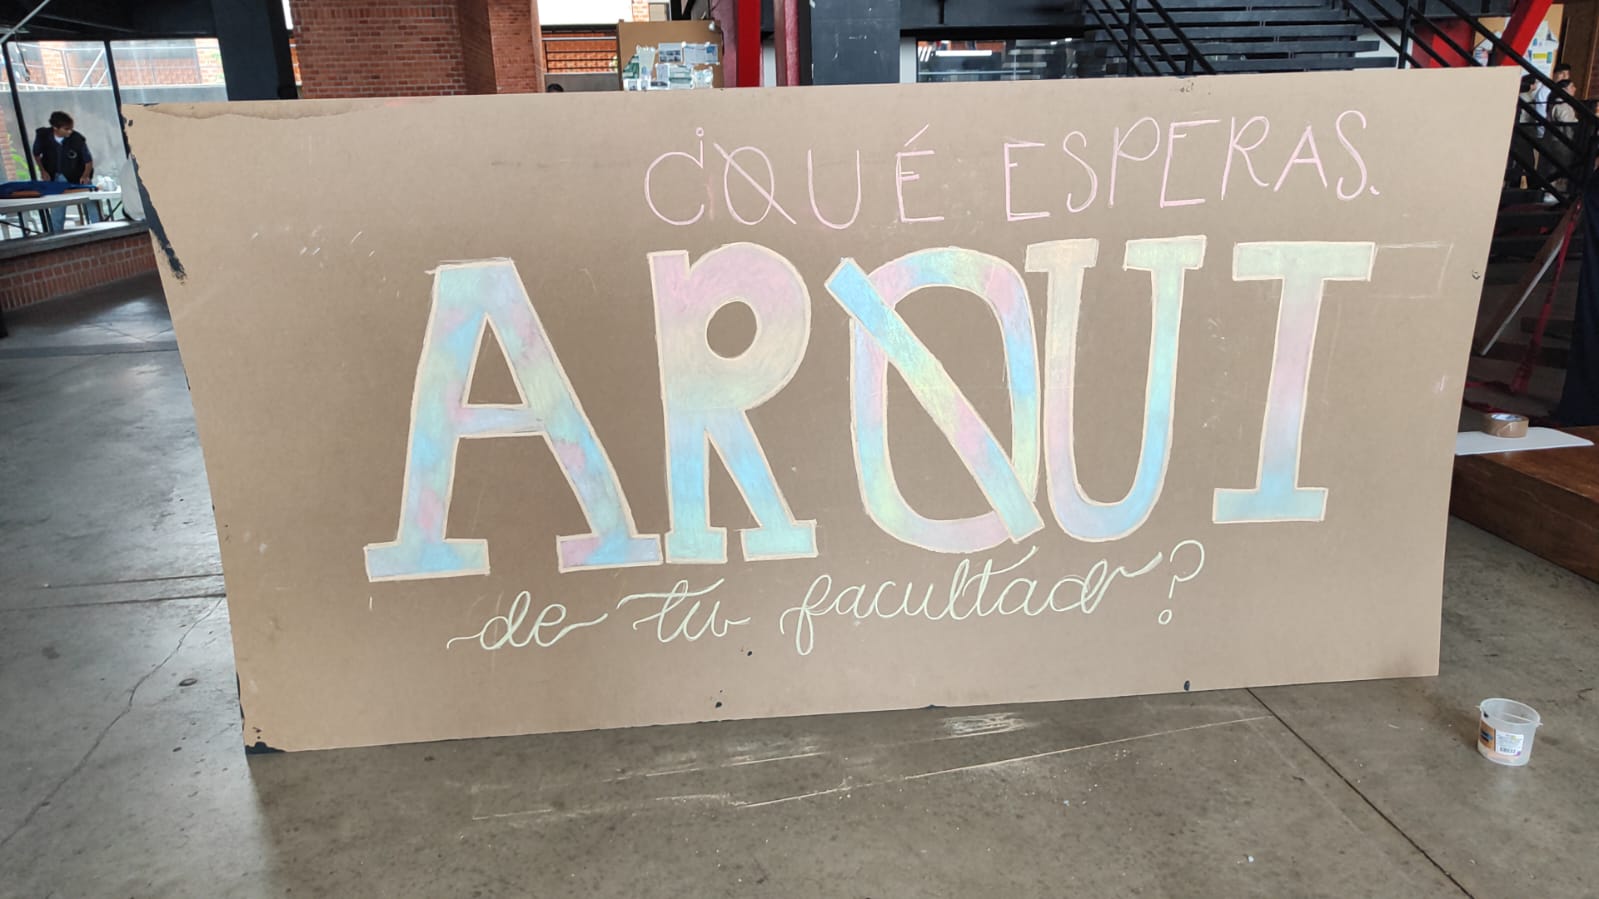 ¿QUÉ ESPERAS.
ARQUI
de tu facultad?